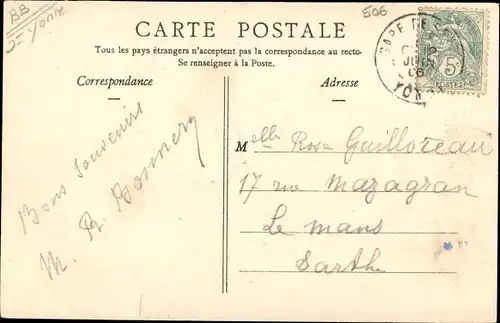 BB
Yonne
506
CARTE POSTALE
Tous les pays étrangers n'acceptent pas la correspondance au recto-
Se renseigner à la Poste.
Correspondance
Adresse
GARE DE
JUIN
06
YONNE
5c
POSTES
Bons Souvenirs
M. R. Bonnery
Melle Rose Guilloteau
17 rue Mazagran
Le mans
Sarthe